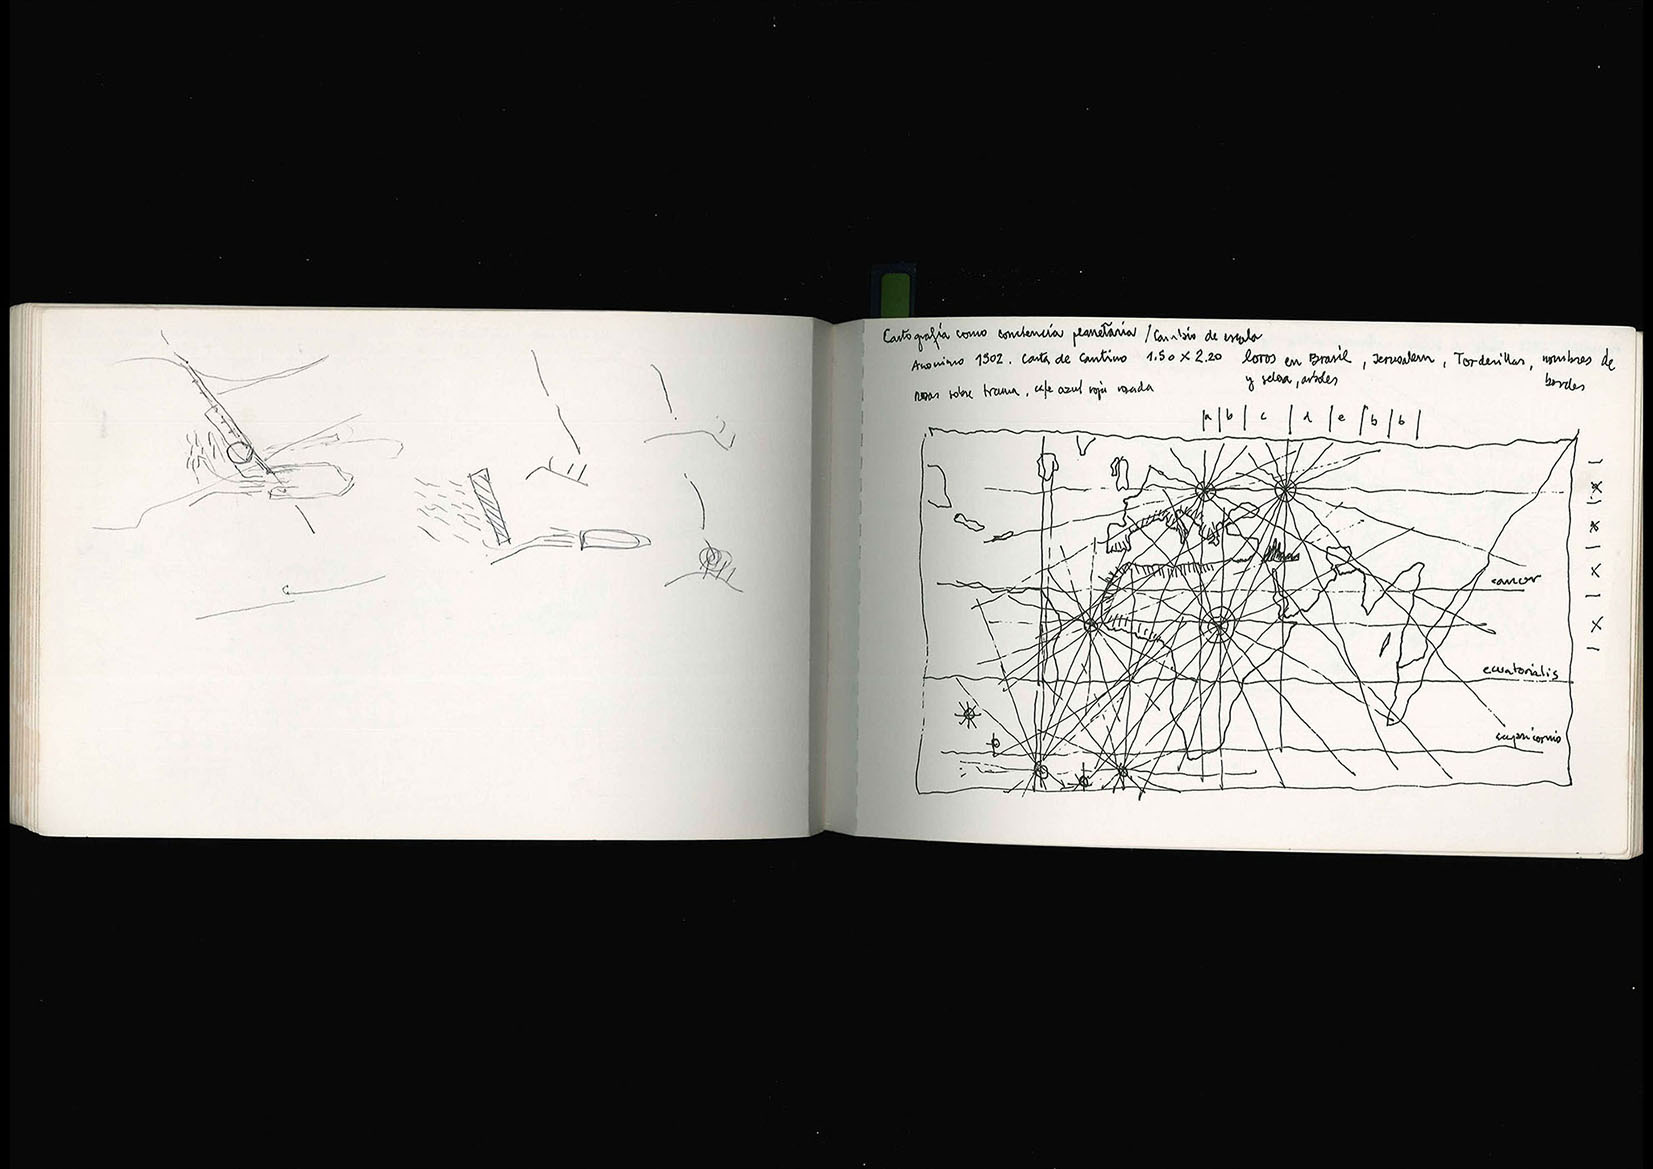 Cartografía como conciencia planetaria / Cambio de escala
Anonimo 1502. Carta de Cantino 1.50 X 2.20 loros en Brasil, Jerusalem, Tordesillas, nombres de
y selva, arboles bordes
rosas sobre trama, cafe azul rojo rosada
a b c d e b b
cancer
ecuatorialis
capricornio